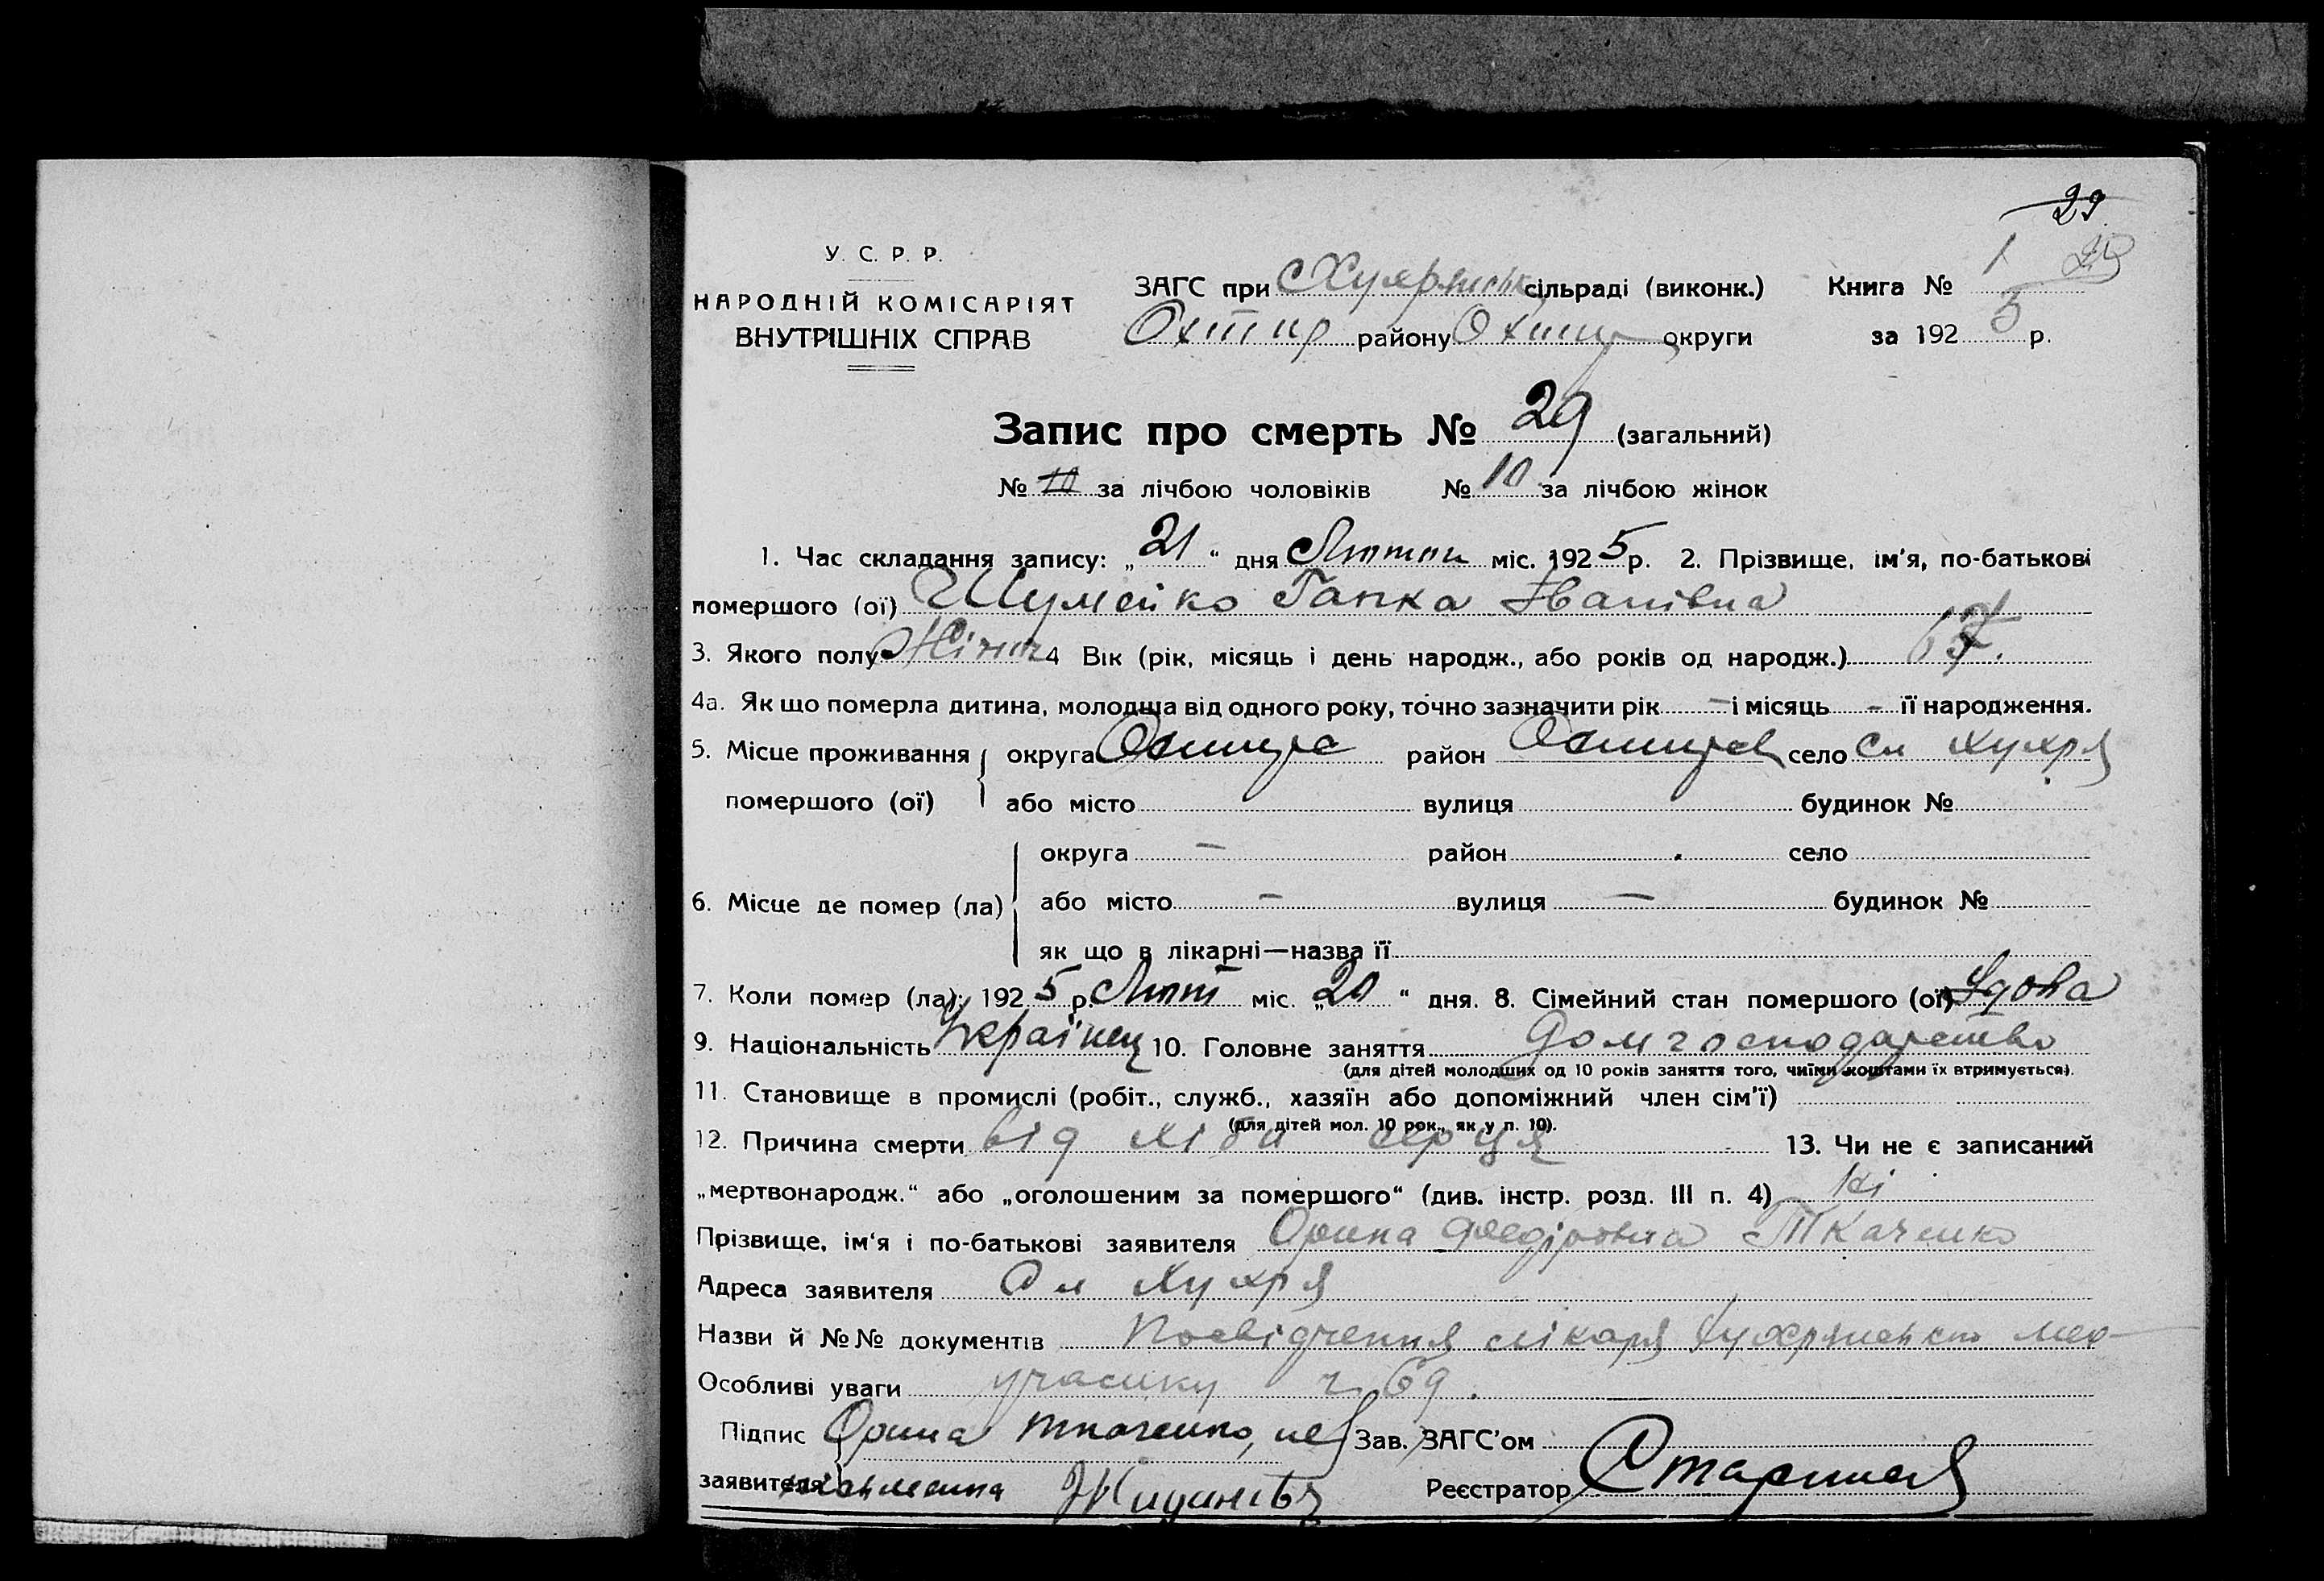 29
У. С. Р. Р.
НАРОДНІЙ КОМІСАРІЯТ
ВНУТРІШНІХ СПРАВ
ЗАГС при с Хухрянськ сільраді (виконк.) Книга № 1
Охтир району Охтир округи за 1925 р.
Запис про смерть № 29 (загальний)
№ 10 за лічбою чоловіків № 10 за лічбою жінок
1. Час складання запису: „21“ дня Лютого міс. 1925 р. 2. Прізвище, ім'я, по-батькові
помершого (ої) Шумейко Гапка Іванівна
3. Якого полу Жіноч 4 Вік (рік, місяць і день народж., або років од народж.)
4а. Як що померла дитина, молодша від одного року, точно зазначити рік – і місяць – її народження.
5. Місце проживання округа Охтирс район Охтирсь село Сл Хухря
помершого (ої) або місто вулиця будинок №
округа – район село
6. Місце де помер (ла) або місто – вулиця – будинок №
як що в лікарні—назва її
7. Коли помер (ла): 1925 р. Лют міс. „20“ дня. 8. Сімейний стан помершого (ої) Удова
9. Національність Українец 10. Головне заняття Домгосподарство
(для дітей молодших од 10 років заняття того, чиїми коштами їх втримується).
11. Становище в промислі (робіт., служб., хазяїн або допоміжний член сім'ї)
(для дітей мол. 10 рок., як у п. 10).
12. Причина смерти від серця 13. Чи не є записаний
„мертвонародж.“ або „оголошеним за помершого“ (див. інстр. розд. III п. 4) Ні
Прізвище, ім'я і по-батькові заявителя Орина Федіровна Ткаченко
Адреса заявителя Сл Хухря
Назви й №№ документів Посвідчення лікаря Хухрянського мед-
Особливі уваги участку ч. 69.
Підпис Орина Ткаченко, не Зав. ЗАГС'ом
заявителя письменна Реєстратор